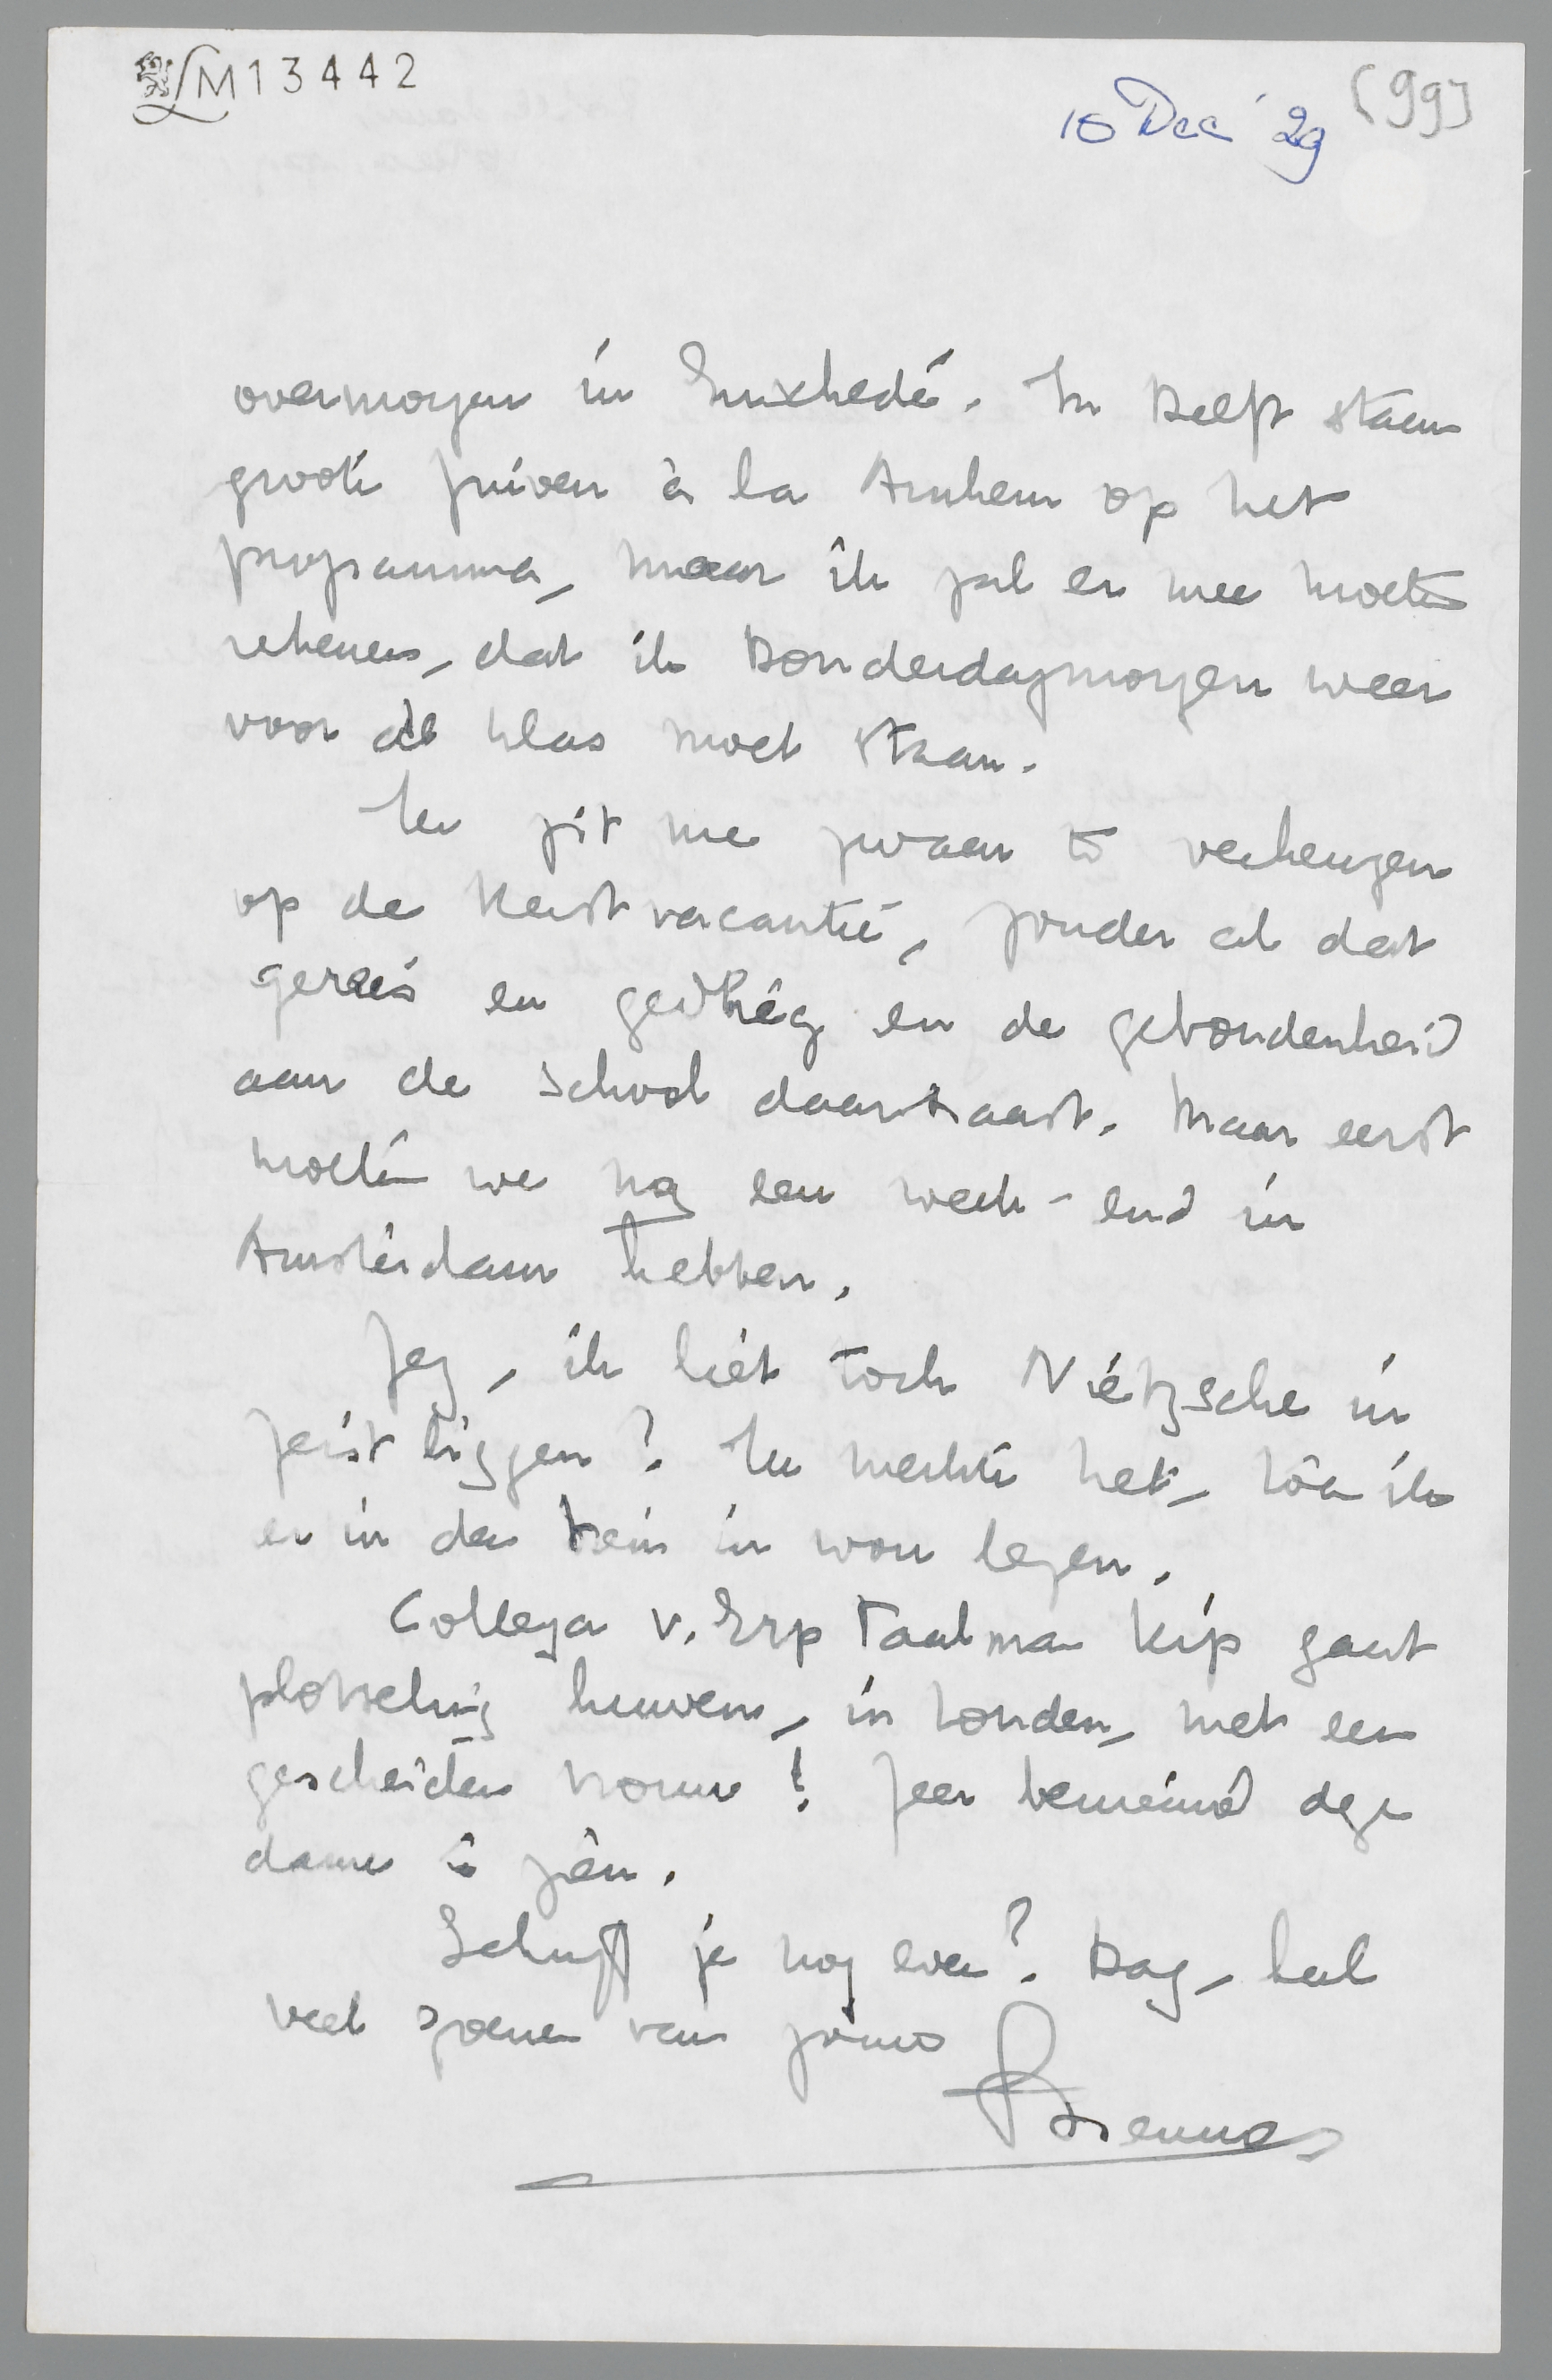 LM13442
10 Dec '29
[99]
overmorgen in Enschedé. In Delft staan
groote fuiven à la Arnhem op het
programma, maar ik zal er mee moeten
rekenen, dat ik Donderdagmorgen weer
voor de klas moet staan.
Ik zit me zwaar te verheugen
op de Kerstvacantie, zonder al dat
gereis en en de gebondenheid
aan de school daarnaast. Maar eerst
moeten we nog een week-end in
Amsterdam hebben.
Zeg, ik liet toch Nietzsche in
Zeist liggen? Ik merkte het, toen ik
er in den trein in wou lezen.
Collega v. Erp Taalman Kip gaat
plotseling huwen, in Londen, met een
gescheiden vrouw! Zeer benieuwd deze
dame te zien.
Schrijf je nog even? Dag, heel
veel zoenen van jouw
Menno